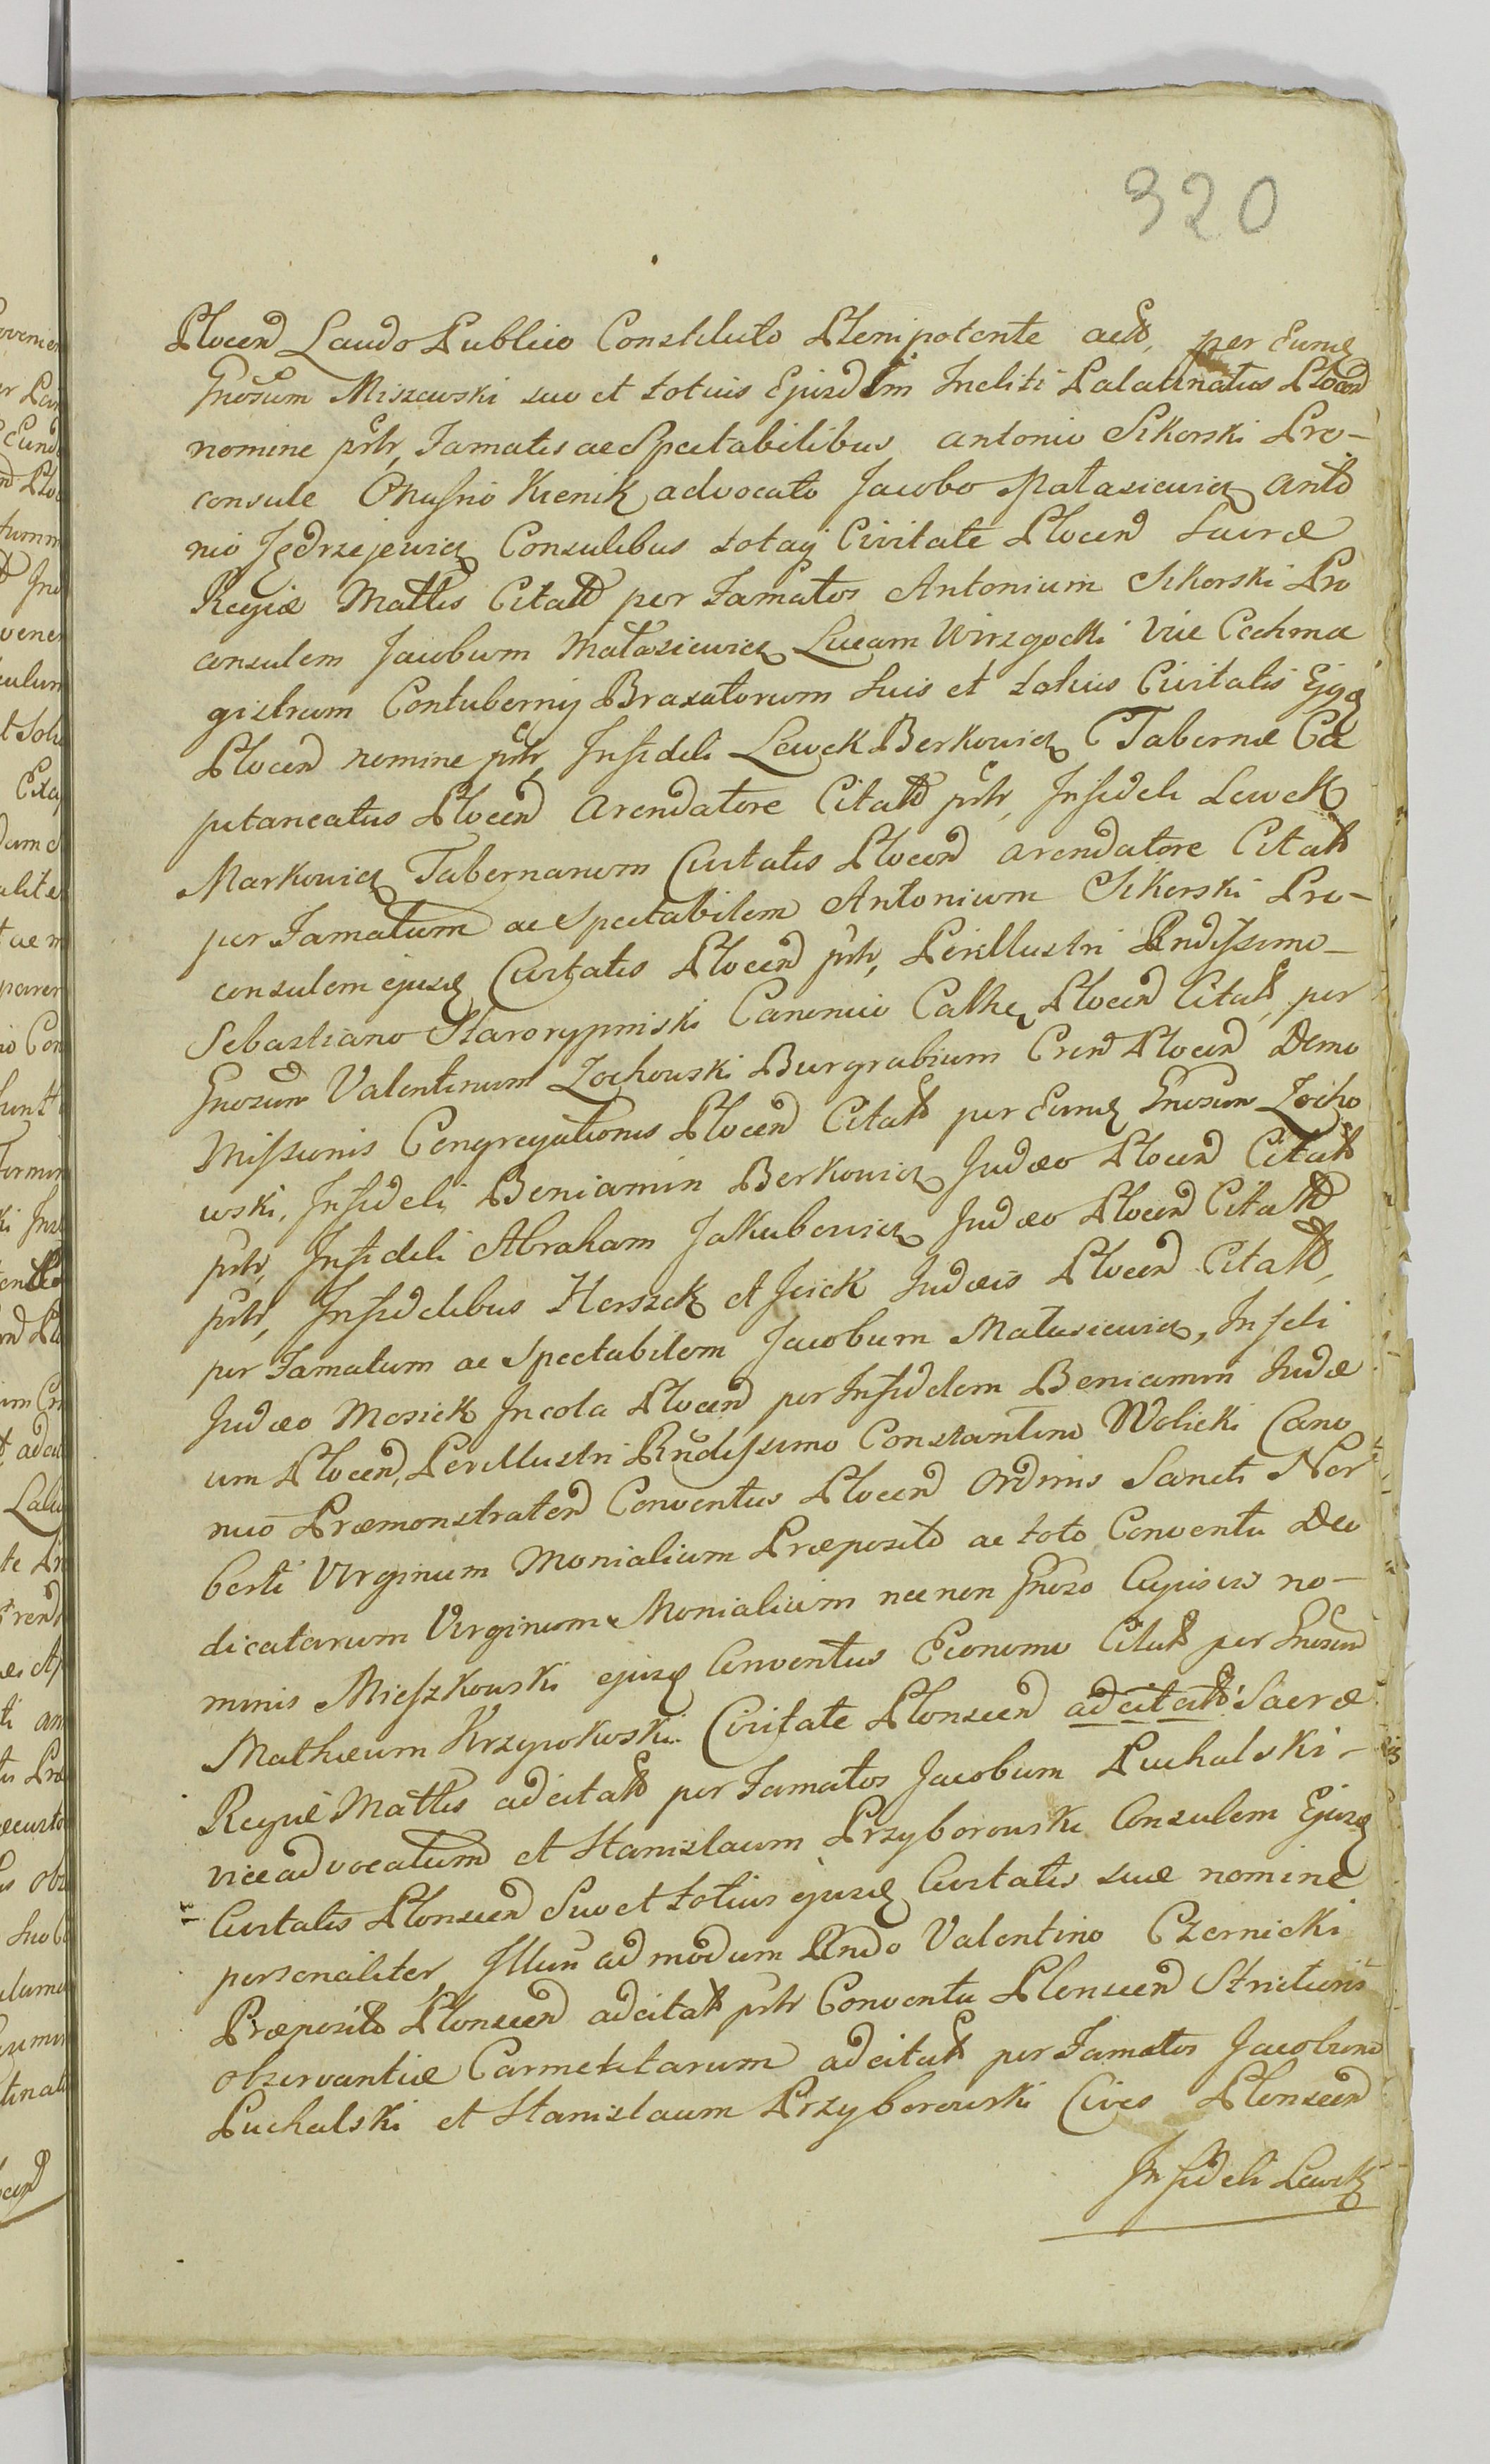 320
Plocen Laudo Publico Constituto Plenipotente act, per Eund
Gnosum Miszewski suo et totius Ejusdem Incliti Palatinatus Plocen
nomine prtr, Famatis ac Spectabilibus antonio Sikorski Pro-
consule Onufrio Krenik advocato Jacobo Matasiewicz anto
nio Jędrzejewicz Consulibus totaq Civitate Plocen Sacræ
Regiæ Mattis Citatt per Famatos Antonium Sikorski Pro
consulem Jacobum Matasiewicz Lucam Wirzgocki Vice Cechma
gistrum Contubernij Braxatorum suis et totius Civitatis Ejusd
Plocen nomine prtr, Infideli Lewek Berkowicz Tabernæ Ca
pitaneatus Plocen Arendatore Citatt prtr, Infideli Lewek
Markowicz Tabernarum Civitatis Plocen arendatore Citatt
per Famatum ac Spectabilem Antonium Sikorski Pro-
consulem ejusd Civitatis Plocen prtr, Perillustri Rndissimo-
Sebastiano Starorypinski Canonico Cathed Plocen Citatt, per
Gnosum Valentinum Zochowski Burgrabium Cren Plocen Domo
Missionis Congregationis Plocen Citatt per Eund Gnosum Zocho
wski, Infideli Beniamin Berkowicz Judæo Plocen Citatt
prtr, Infideli Abraham Jakubowicz Judæo Plocen Citatt
prtr, Infidelibus Herszek et Jcick Judæis Plocen Citatt,
per Famatum ac Spectabilem Jacobum Matusiewicz, Infdli
Judæo Mosiek Incola Plocen per Infidelem Beniamin Judæ
um Plocen, Perillustri Rndissimo Constantino Wolicki Cano
nico Præmonstraten Conventus Plocen Ordinis Sancti Nor
berti Virginum Monialium Præposito ac toto Conventu Deo
dicatarum Virginum Monialium nec non Gnoso Cujusvis no-
minis Mieszkowski ejusd Conventus Economo Citatt per Gnosum
Mathæum Krzywkowski. Civitate Plonscen adcitatt Sacræ
Regiæ Mattis adcitatt per Famatos Jacobum Puchalski-
viceadvocatum et Stanislaum Przyborowski Consulem Ejusd
Civitatis Plonscen Suo et totius ejusd Civitatis suæ nomine
personaliter, Illun admodum Rndo Valentino Czernicki
Præposito Plonscen adcitatt prtr Conventu Plonscen Strictioris
observantiæ Carmelitarum adcitatt per Famatos Jacobum
Puchalski et Stanislaum Przyborowski Cives Plonscen
Infideli Lewek